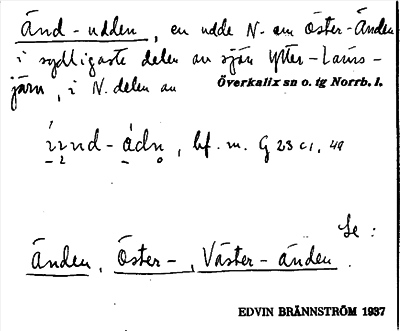 Änd-udden, en udde N. om Öster-Änden
i sydligaste delen av sjön Ytter-Lans-
järv, i N. delen av Överkalix sn o. tg Norrb. l.
bf. m. G 23 c 1, 49
Se:
Änden, Öster-, Väster-änden.
EDVIN BRÄNNSTRÖM 1937